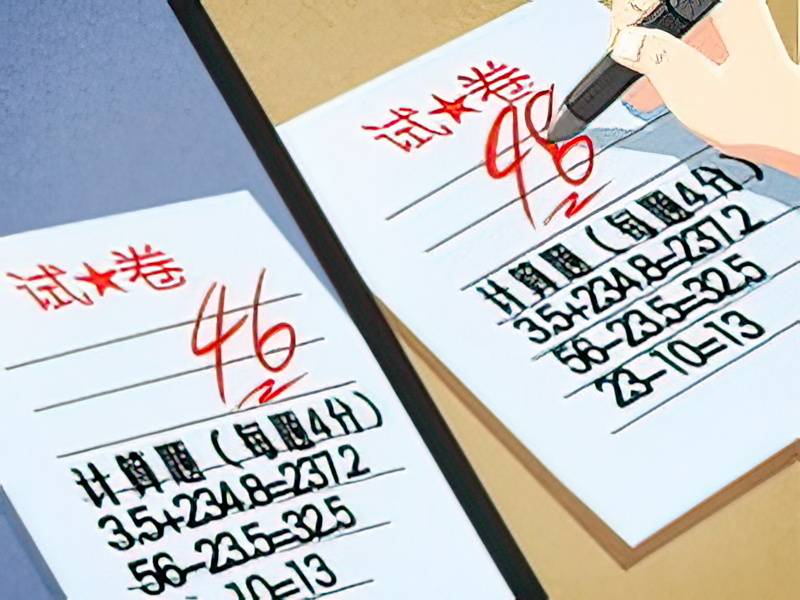 试★卷
46
计算题（每题4分）
3.5+234.8=237.2
56-23.5=32.5
10=13
试★卷
48
计算题（每题4分）
3.5+234.8=237.2
56-23.5=32.5
23-10=13